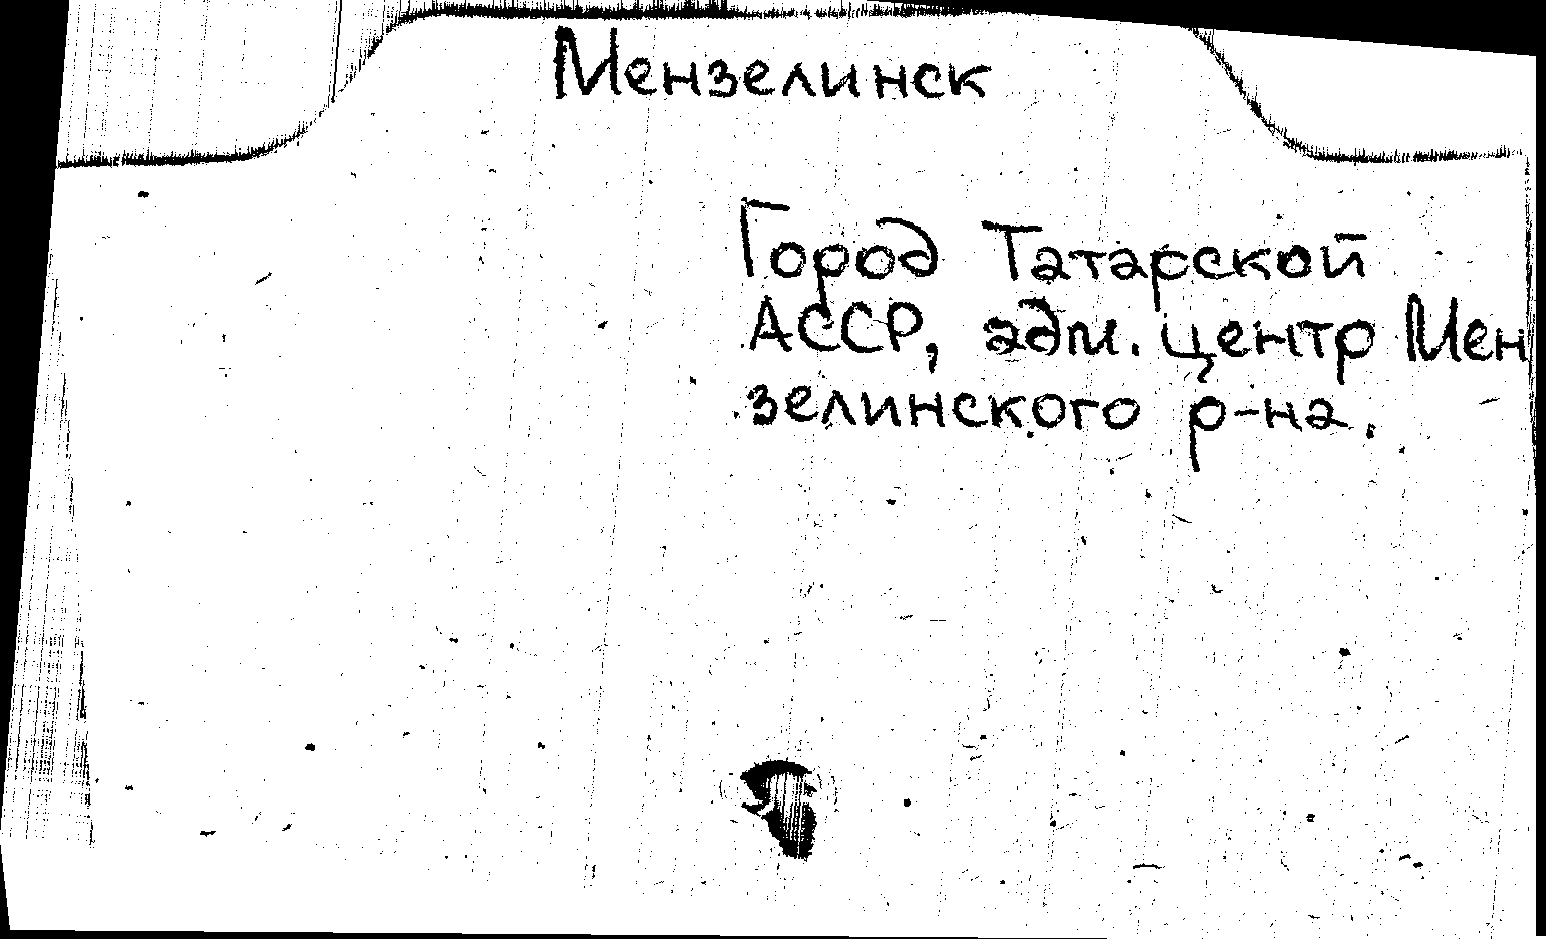 Мензелинск
Город Татарской
АССР, адм. центр Мен
зелинского р-на.